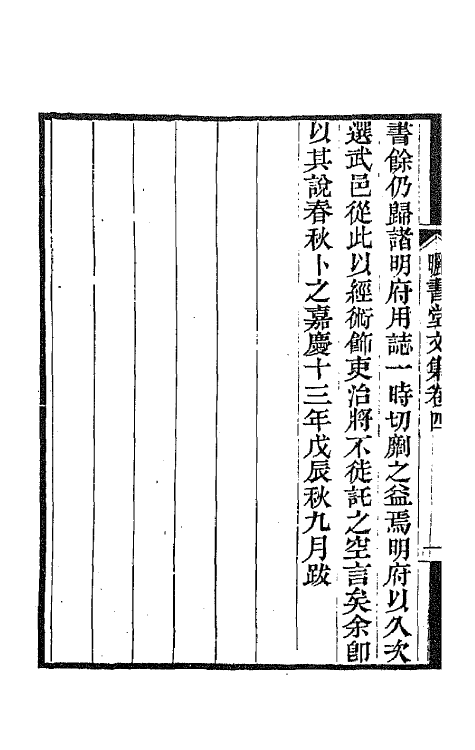 曬書堂文集卷四
書餘仍歸諸明府用誌一時切劘之益焉明府以久次
選武邑從此以經術飾吏治將不徒託之空言矣余卽
以其說春秋卜之嘉慶十三年戊辰秋九月跋